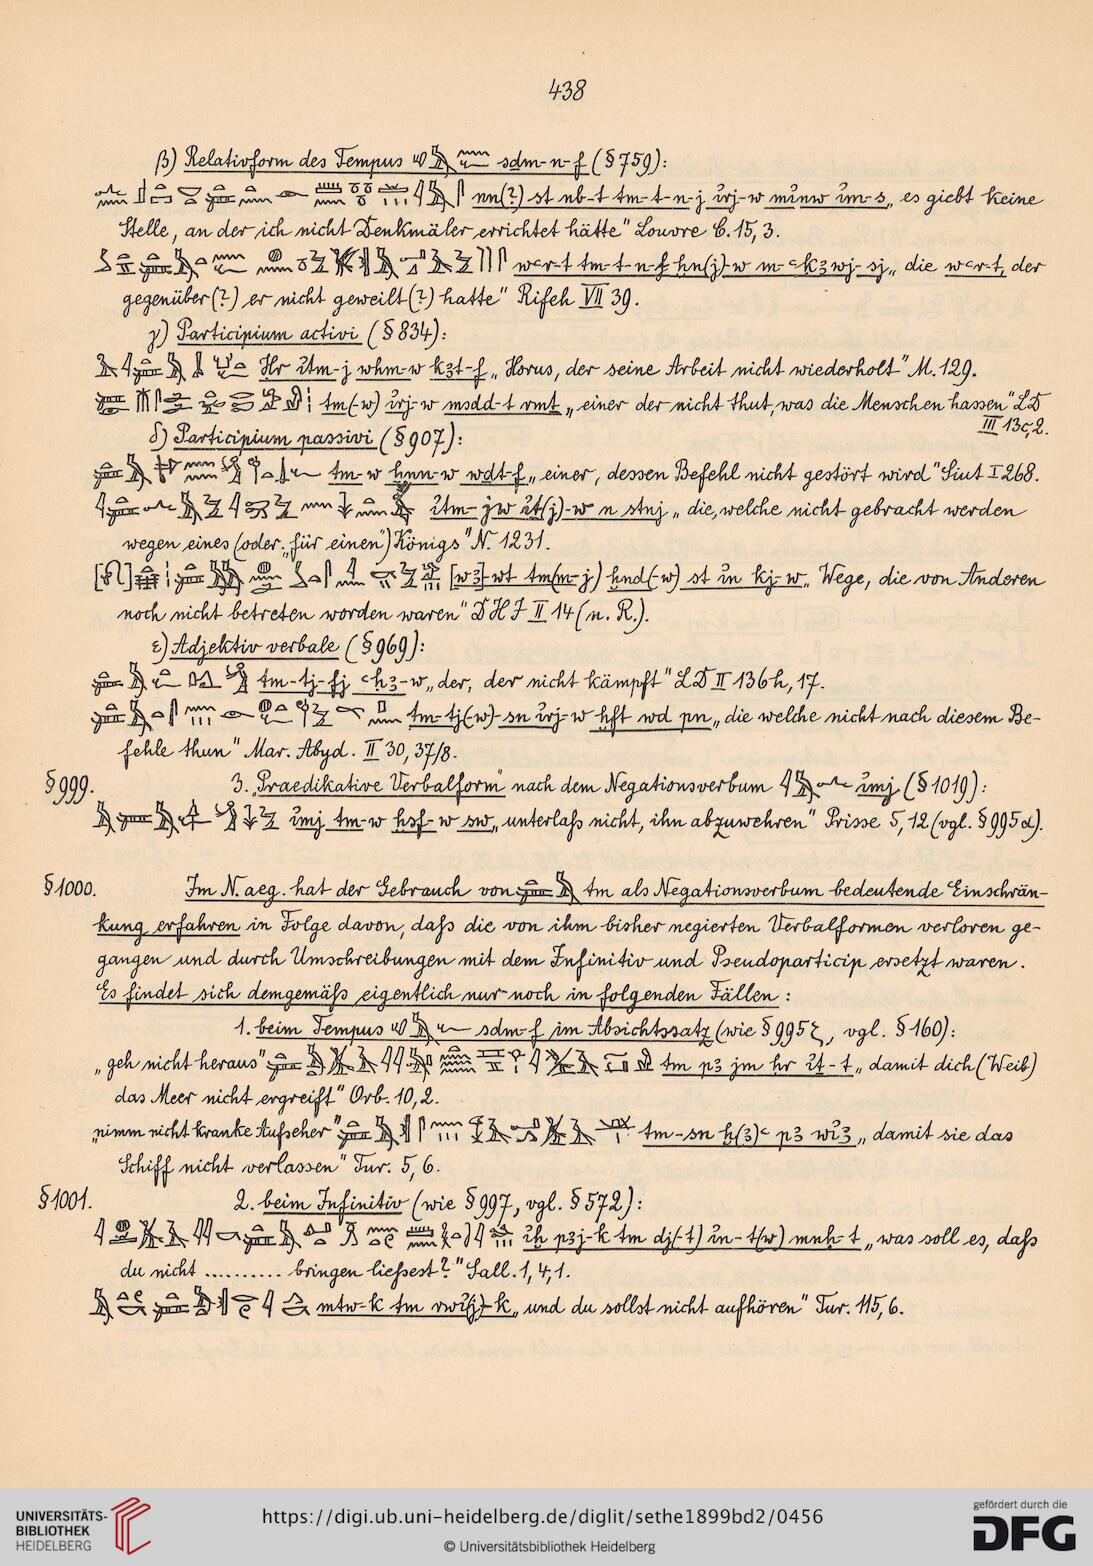 438
β) Relativform des Tempus sdm-n-f (§759):
nn(?) st nb-t tm-t-n-j irj-w minw im-s „es giebt keine
Stelle, an der ich nicht Denkmäler errichtet hätte" Louvre C. 15, 3.
„die wʿr-t, der
gegenüber(?) er nicht geweilt(?) hatte" Rifeh VII 39.
γ) Participium activi (§834):
Ḥr itm-j wḥm-w kꜣt-f „Horus, der seine Arbeit nicht wiederholt" M. 129.
tm(-w) irj-w msdd-t rmt „einer der nicht thut, was die Menschen hassen" LD
III 13c, 2.
δ) Participium passivi (§907):
tm-w ḫnn-w wdt-f „einer, dessen Befehl nicht gestört wird" Siut I 268.
itm-jw it(j)-w n stnj „die, welche nicht gebracht werden
wegen eines (oder „für einen") Königs" N. 1231.
[wꜣ]-wt tm(m-j) ḫnd(-w) st in kj-w „Wege, die von Anderen
noch nicht betreten worden waren" DHJ II 14 (n. R.).
ε) Adjektiv verbale (§969):
tm-tj-fj ʿḥꜣ-w „der, der nicht kämpft" LD II 136h, 17.
tm-tj(-w)-sn irj-w ḫft wd pn „die welche nicht nach diesem Be-
fehle thun" Mar. Abyd. II 30, 37/8.
§999. 3. „Praedikative Verbalform" nach dem Negationsverbum imj (§1019):
imj tm-w ḫsf-w sw „unterlaß nicht, ihn abzuwehren" Prisse 5, 12 (vgl. §995α).
§1000. Im N. aeg. hat der Gebrauch von tm als Negationsverbum bedeutende Einschrän-
kung erfahren in Folge davon, daß die von ihm bisher negierten Verbalformen verloren ge-
gangen und durch Umschreibungen mit dem Infinitiv und Pseudoparticip ersetzt waren.
Es findet sich demgemäß eigentlich nur noch in folgenden Fällen:
1. beim Tempus sdm-f im Absichtssatz (wie §995ζ, vgl. §160):
„geh nicht heraus" tm pꜣ jm ḥr it-t „damit dich (Weib)
das Meer nicht ergreift" Orb. 10, 2.
„nimm nicht kranke Aufseher" tm-sn ḫ(ꜣ)ʿ pꜣ wiꜣ „damit sie das
Schiff nicht verlassen" Tur. 5, 6.
§1001. 2. beim Infinitiv (wie §997, vgl. §572):
iḫ pꜣj-k tm dj(-t) in-t(w) mnḥ-t „was soll es, daß
du nicht .......... bringen ließest?" Sall. 1, 4, 1.
mtw-k tm rwi(j)-k „und du sollst nicht aufhören" Tur. 115, 6.
UNIVERSITÄTS-
BIBLIOTHEK
HEIDELBERG
https://digi.ub.uni-heidelberg.de/diglit/sethe1899bd2/0456
© Universitätsbibliothek Heidelberg
gefördert durch die
DFG